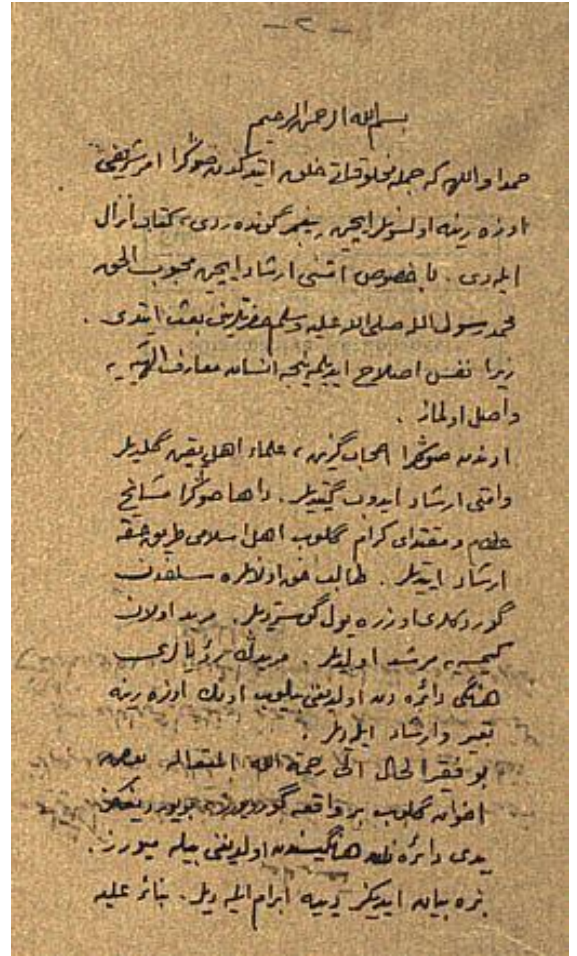 - ٢ -
بسم الله الرحمن الرحيم
حمد او اللهه كه جمله مخلوقاتى خلق ايتدكدن صوڭرا امر شريفى
اوزه رينه اولسونلر ايچين پيغمبر گونده ردى، كتاب انزال
ايله دى . با خصوص امتنى ارشاد ايچين محبوب الحق
محمد رسول الله صلى الله عليه وسلم حضرتلرينى بعث ايتدى .
زيرا نفس اصلاح ايديلمه ينجه انسان معارف الهيه يه
واصل اولماز .
اوندن صوڭرا اصحاب گزين ، علماء اهل يقين گلديلر
وامتى ارشاد ايدوب گيتديلر . داها صوڭرا مشايخ
عظام و مقتداى كرام گلوب اهل اسلامى طريق حقه
ارشاد ايتديلر . طالب حق اولانلره سلفدن
گوردكلرى اوزره يول گوسترديلر . مريد اولان
كيمسه يه مرشد اولديلر . مريدڭ رؤيالرى
هانگى دائره دن اولديغنى بيلوب اونڭ اوزه رينه
تعبير وارشاد ايله ديلر .
بو فقير الحال الى رحمة الله المتعاله بعض
اخوان گلوب بر واقعه گورييورز
يدى دائره نڭ هانگيسندن اولديغنى بيله ميورز .
بزه بيان ايديڭز دييه ابرام ايله ديلر . بناءً عليه